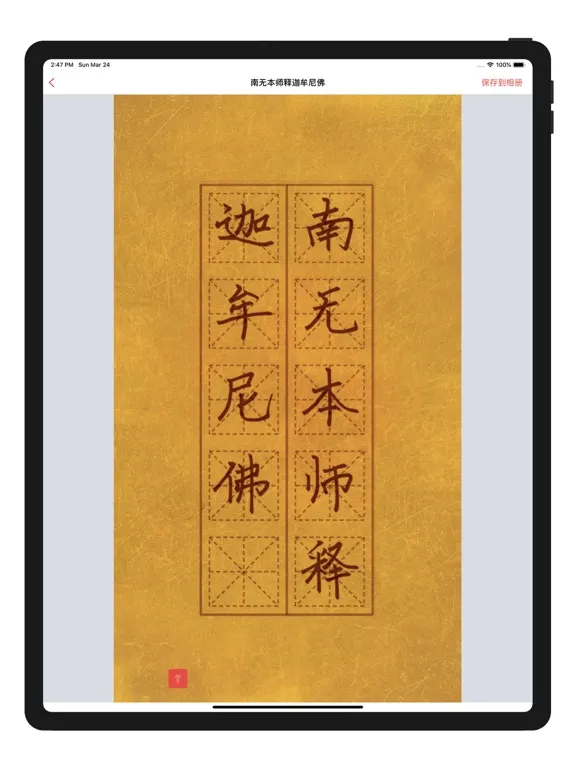 2:47 PM Sun Mar 24
100%
南无本师释迦牟尼佛
保存到相册
南无本师释
迦牟尼佛